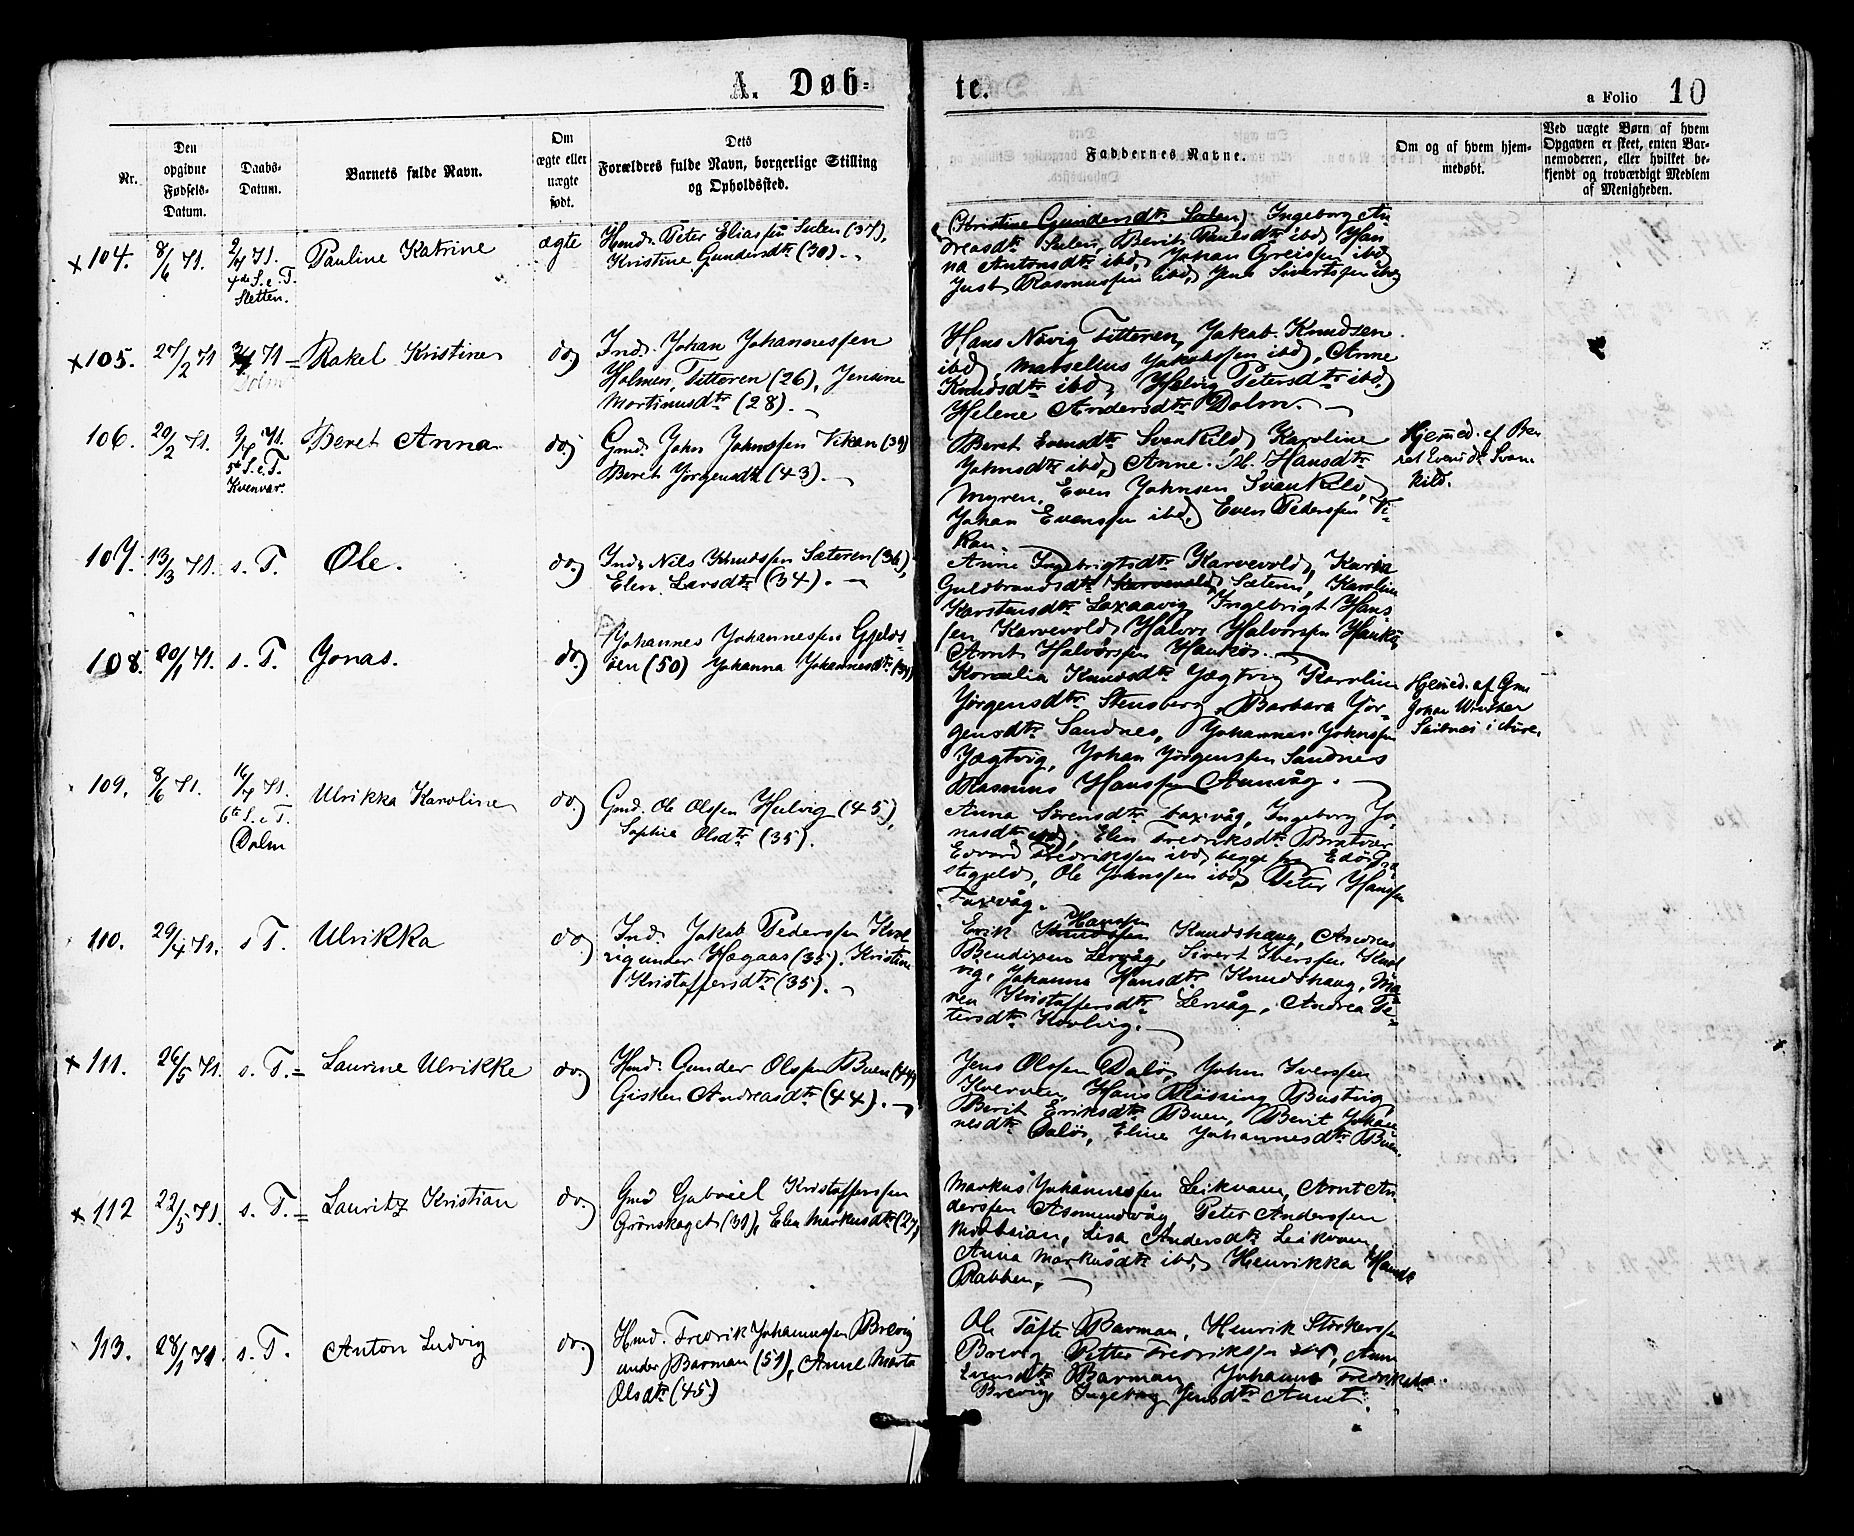 A. Døb-
te.
a Folio 10
Nr.
Den opgivne Fødsels-Datum.
Daabs-Datum.
Barnets fulde Navn.
Om ægte eller uægte født.
Dets Forældres fulde Navn, borgerlige Stilling og Opholdssted.
Faddernes Navne.
Om og af hvem hjemmedøbt.
Ved uægte Børn af hvem Opgaven er skeet, enten Barnemoderen, eller hvilket bekjendt og troværdigt Medlem af Menigheden.
x 104. 8/6 71. 2/7 71. 4de S. e. T. Sletten.
Pauline Katrine
ægte
Hmd. Peter Eliassen Sulen (37),
Kristine Gundersdtr (30).
Kristine Gundersdtr Sulen, Ingeborg An-
dreasdtr Sulen, Berit Paulsdtr ibd, Han-
na Antonsdtr ibd, Johan Greissen ibd
Just Rasmussen ibd, Jens Sivertssen ibd
x 105. 27/2 71 71 = Dolm
Rakel Kristine
do
Ind. Johan Johannessen
Holmen, Titteren (26), Jensine
Martinusdtr (28).
Hans Növig Titteren, Jakob Knudsen
ibd, Marselius Jakobssen ibd, Anne
Knudsdtr ibd, Helvig Petersdtr ibd,
Helene Andersdtr Dolm.
106. 20/2 71. 9/7 71. 5te S. e. T. Kvenvær.
Beret Anna
do
Gmd. John Johnssen Vikan (39)
Beret Jörgensdtr (43).
Beret Evensdtr Svankild, Karoline
Johnsdtr ibd, Anne M. Hansdtr
Myren, Even Johnsen Svankild,
Johan Evenssen ibd, Even Pederssen Vi-
kan.
Hjemmed. af Be-
ret Evensdtr Svan-
kild.
107. 13/3 71. s. T.
Ole.
do
Ind. Nils Knudssen Sæteren (36),
Elen Larsdtr (34).
Anne Ingebrigtsdtr Karvevold, Karia
Guldbrandsdtr Karvevold, Sæteren, Karolin
Karstensdtr Laxaavig, Ingebrigt Hans-
sen Karvevold, Halvor Halvorssen Haukö,
Arnt Halvorssen Haukös.
108. 20/1 71. s. T.
Jonas.
do
Johannes Johannessen Gjelds-
öen (50) Johanna Johannesdtr (39)
Kornelia Knudsdtr Jægtvig Karolin
Jörgensdtr Stensberg, Barbara Jör-
gensdtr Sandnes, Johannes Johnssen
Jægtvig, Johan Jörgenssen Sandnes
Rasmus Hanssen Aunvåg.
Hjemmed. af Gm.
Johan
i Aure.
109. 8/6 71. 16/7 71. 6te S. e. T. Dolm
Ulrikka Karoline
do
Gmd. Ole Olssen Helvig (45),
Sophie Olsdtr (35).
Anna Sörensdtr Faxvåg, Ingeborg Jo-
nasdtr ibd, Elen Fredriksdtr Bratvær
Edvard Fredrikssen ibd, begge fra Edös Præ-
stegjeld, Ole Johnssen ibd, Peter Hanssen
Faxvåg.
110. 29/4 71. s T.
Ulrikka
do
Ind. Jakob Pederssen Kvol-
vig under Hegaas (35). Kristine
Kristoffersdtr (35).
Erik Knudssen Hanssen Knudshaug, Andreas
Bendixen Lervåg, Sivert Iverssen Kvol-
vig, Johanna Hansdtr Knudshaug, Ma-
ren Kristoffersdtr Lervåg, Andrea Pe-
tersdtr Kvolvig.
x 111. 26/5 71. s. T. =
Laurine Ulrikke
do
Hmd. Gunder Olssen Buen (44),
Gisken Andreasdtr (44).
Jens Olssen Dalö, John Iverssen
Kverven, Hans Rössing Bustvig,
Berit Eriksdtr Buen, Berit Johan-
nesdtr Dalö, Eline Johannesdtr Buen.
x 112 22/5 71. s. T. =
Lauritz Kristian
do.
Gmd Gabriel Kristofferssen
Grönskaget (31), Elen Markusdtr (27)
Markus Johannessen Leikvam, Arnt An-
derssen Asmundvåg Peter Anderssen
Lisa Andersdtr Leikvam,
Anna Markusdtr ibd, Henrikka Hansdtr
Rabben,
113. 28/1 71. s. T.
Anton Ludvig
do.
Hmd. Fredrik Johannessen Brevig
under Barman (51), Anne Marta
Olsdtr (45)
Ole Tøfte Barman, Henrik Storkerssen
Brevig Petter Fredrikssen ibd, Anne
Evensdtr Barman, Johanne Fredriksdtr
Brevig, Ingeborg Jensdtr Aunet.